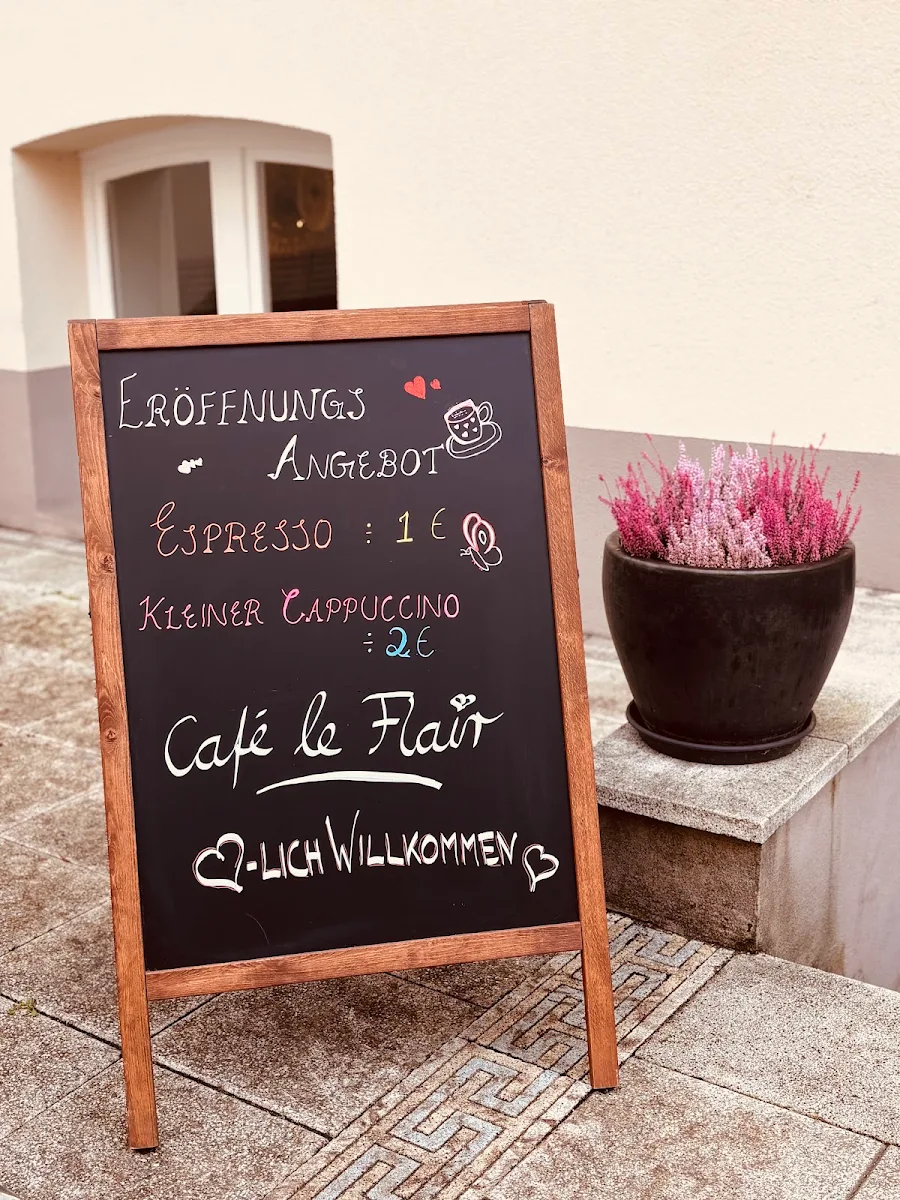 ERÖFFNUNGS
ANGEBOT
ESPRESSO : 1 €
KLEINER CAPPUCCINO
: 2 €
Café le Flair
-LICH WILLKOMMEN